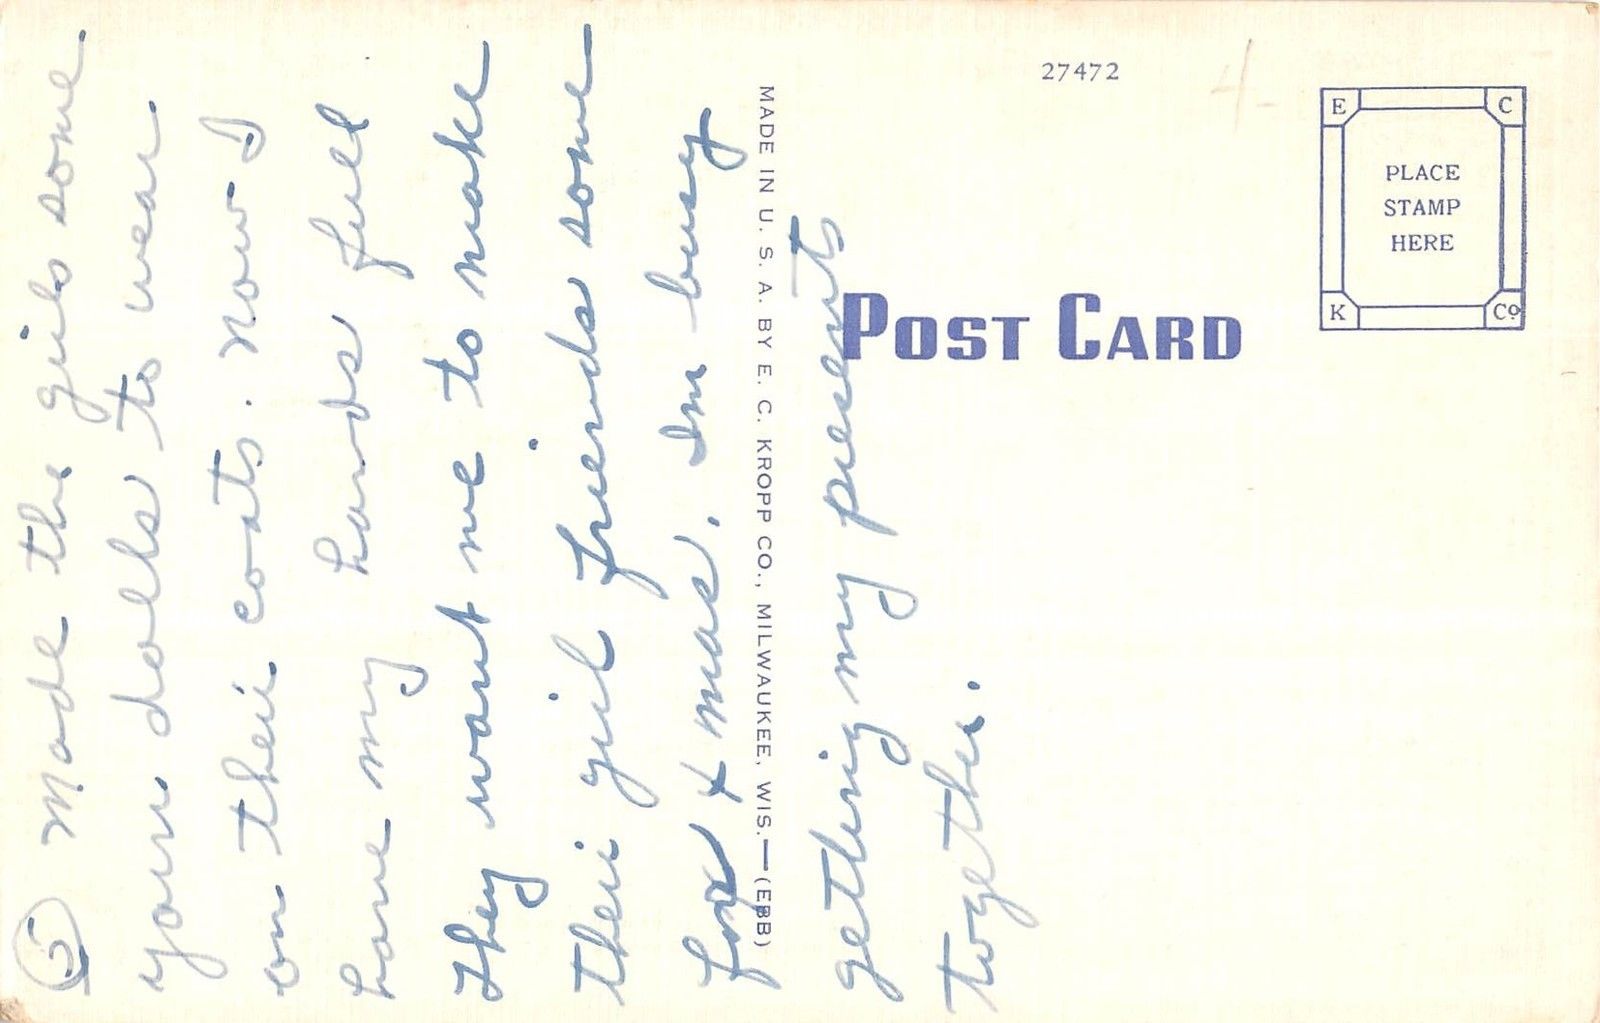 5 Made the girls some
yarn dolls to wear
on their coats. Now I
have my hands full
they want me to make
their girl friends some
for x mas. Im busy
getting my presents
together.
MADE IN U. S. A. BY E. C. KROPP CO., MILWAUKEE, WIS.—(EBB)
27472
POST CARD
E C
PLACE
STAMP
HERE
K Cº
4